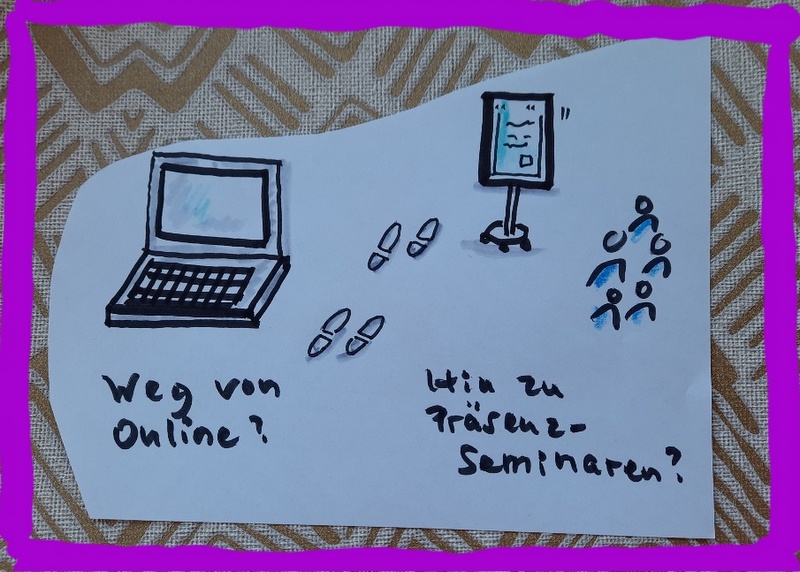 Weg von
Online?
Hin zu
Präsenz-
Seminaren?